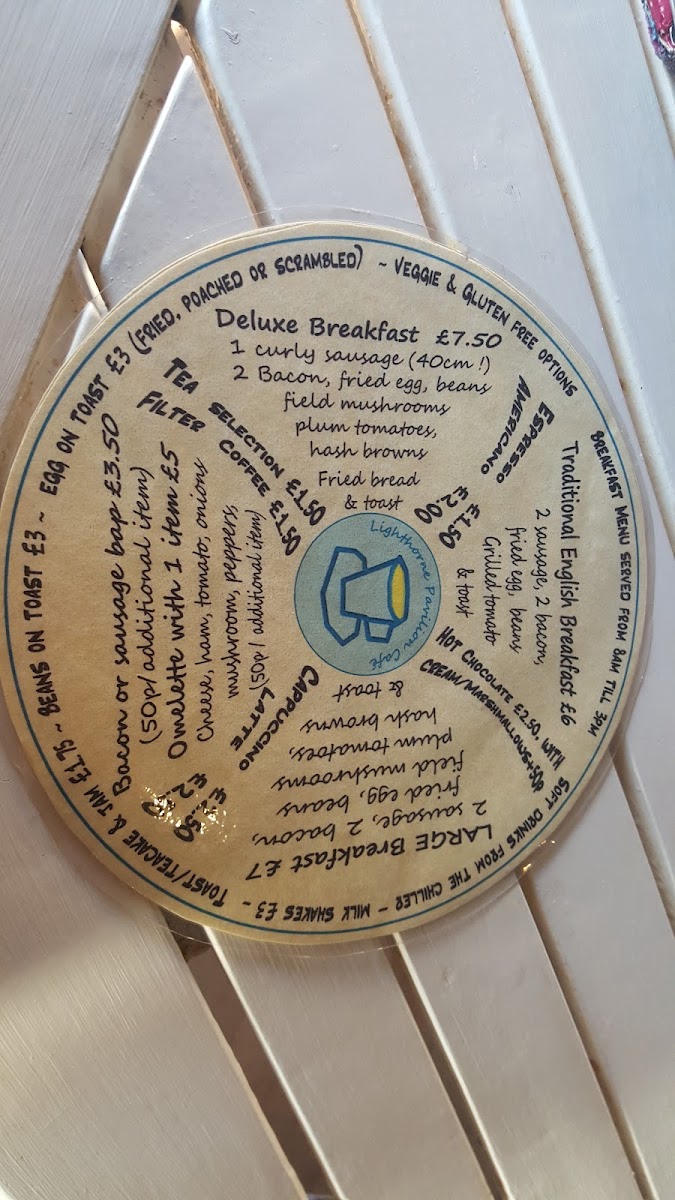 EGG ON TOAST £3 (FRIED, POACHED OR SCRAMBLED) ~ VEGGIE & GLUTEN FREE OPTIONS
BREAKFAST MENU SERVED FROM 8AM TILL 3PM
SOFT DRINKS FROM THE CHILLER – MILK SHAKES £3 ~ TOAST/TEACAKE & JAM £1.75 ~ BEANS ON TOAST £3 ~
Deluxe Breakfast £7.50
1 curly sausage (40cm!)
2 Bacon, fried egg, beans
field mushrooms
plum tomatoes,
hash browns
Fried bread
& toast
ESPRESSO £1.50
AMERICANO £2.00
Traditional English Breakfast £6
2 sausage, 2 bacon,
fried egg, beans
Grilled tomato
& toast
HOT CHOCOLATE £2.50. WITH
CREAM/MARSHMALLOWS+50P
LARGE Breakfast £7
2 sausage, 2 bacon,
fried egg, beans
field mushrooms
plum tomatoes,
hash browns
& toast
CAPPUCCINO
LATTE
Bacon or sausage bap £3.50
(50p/additional item)
Omelette with 1 item £5
Cheese, ham, tomato, onions
mushrooms, peppers,
(50p/additional item)
TEA SELECTION £1.50
FILTER COFFEE £1.50
Lighthorne Pavilion Café